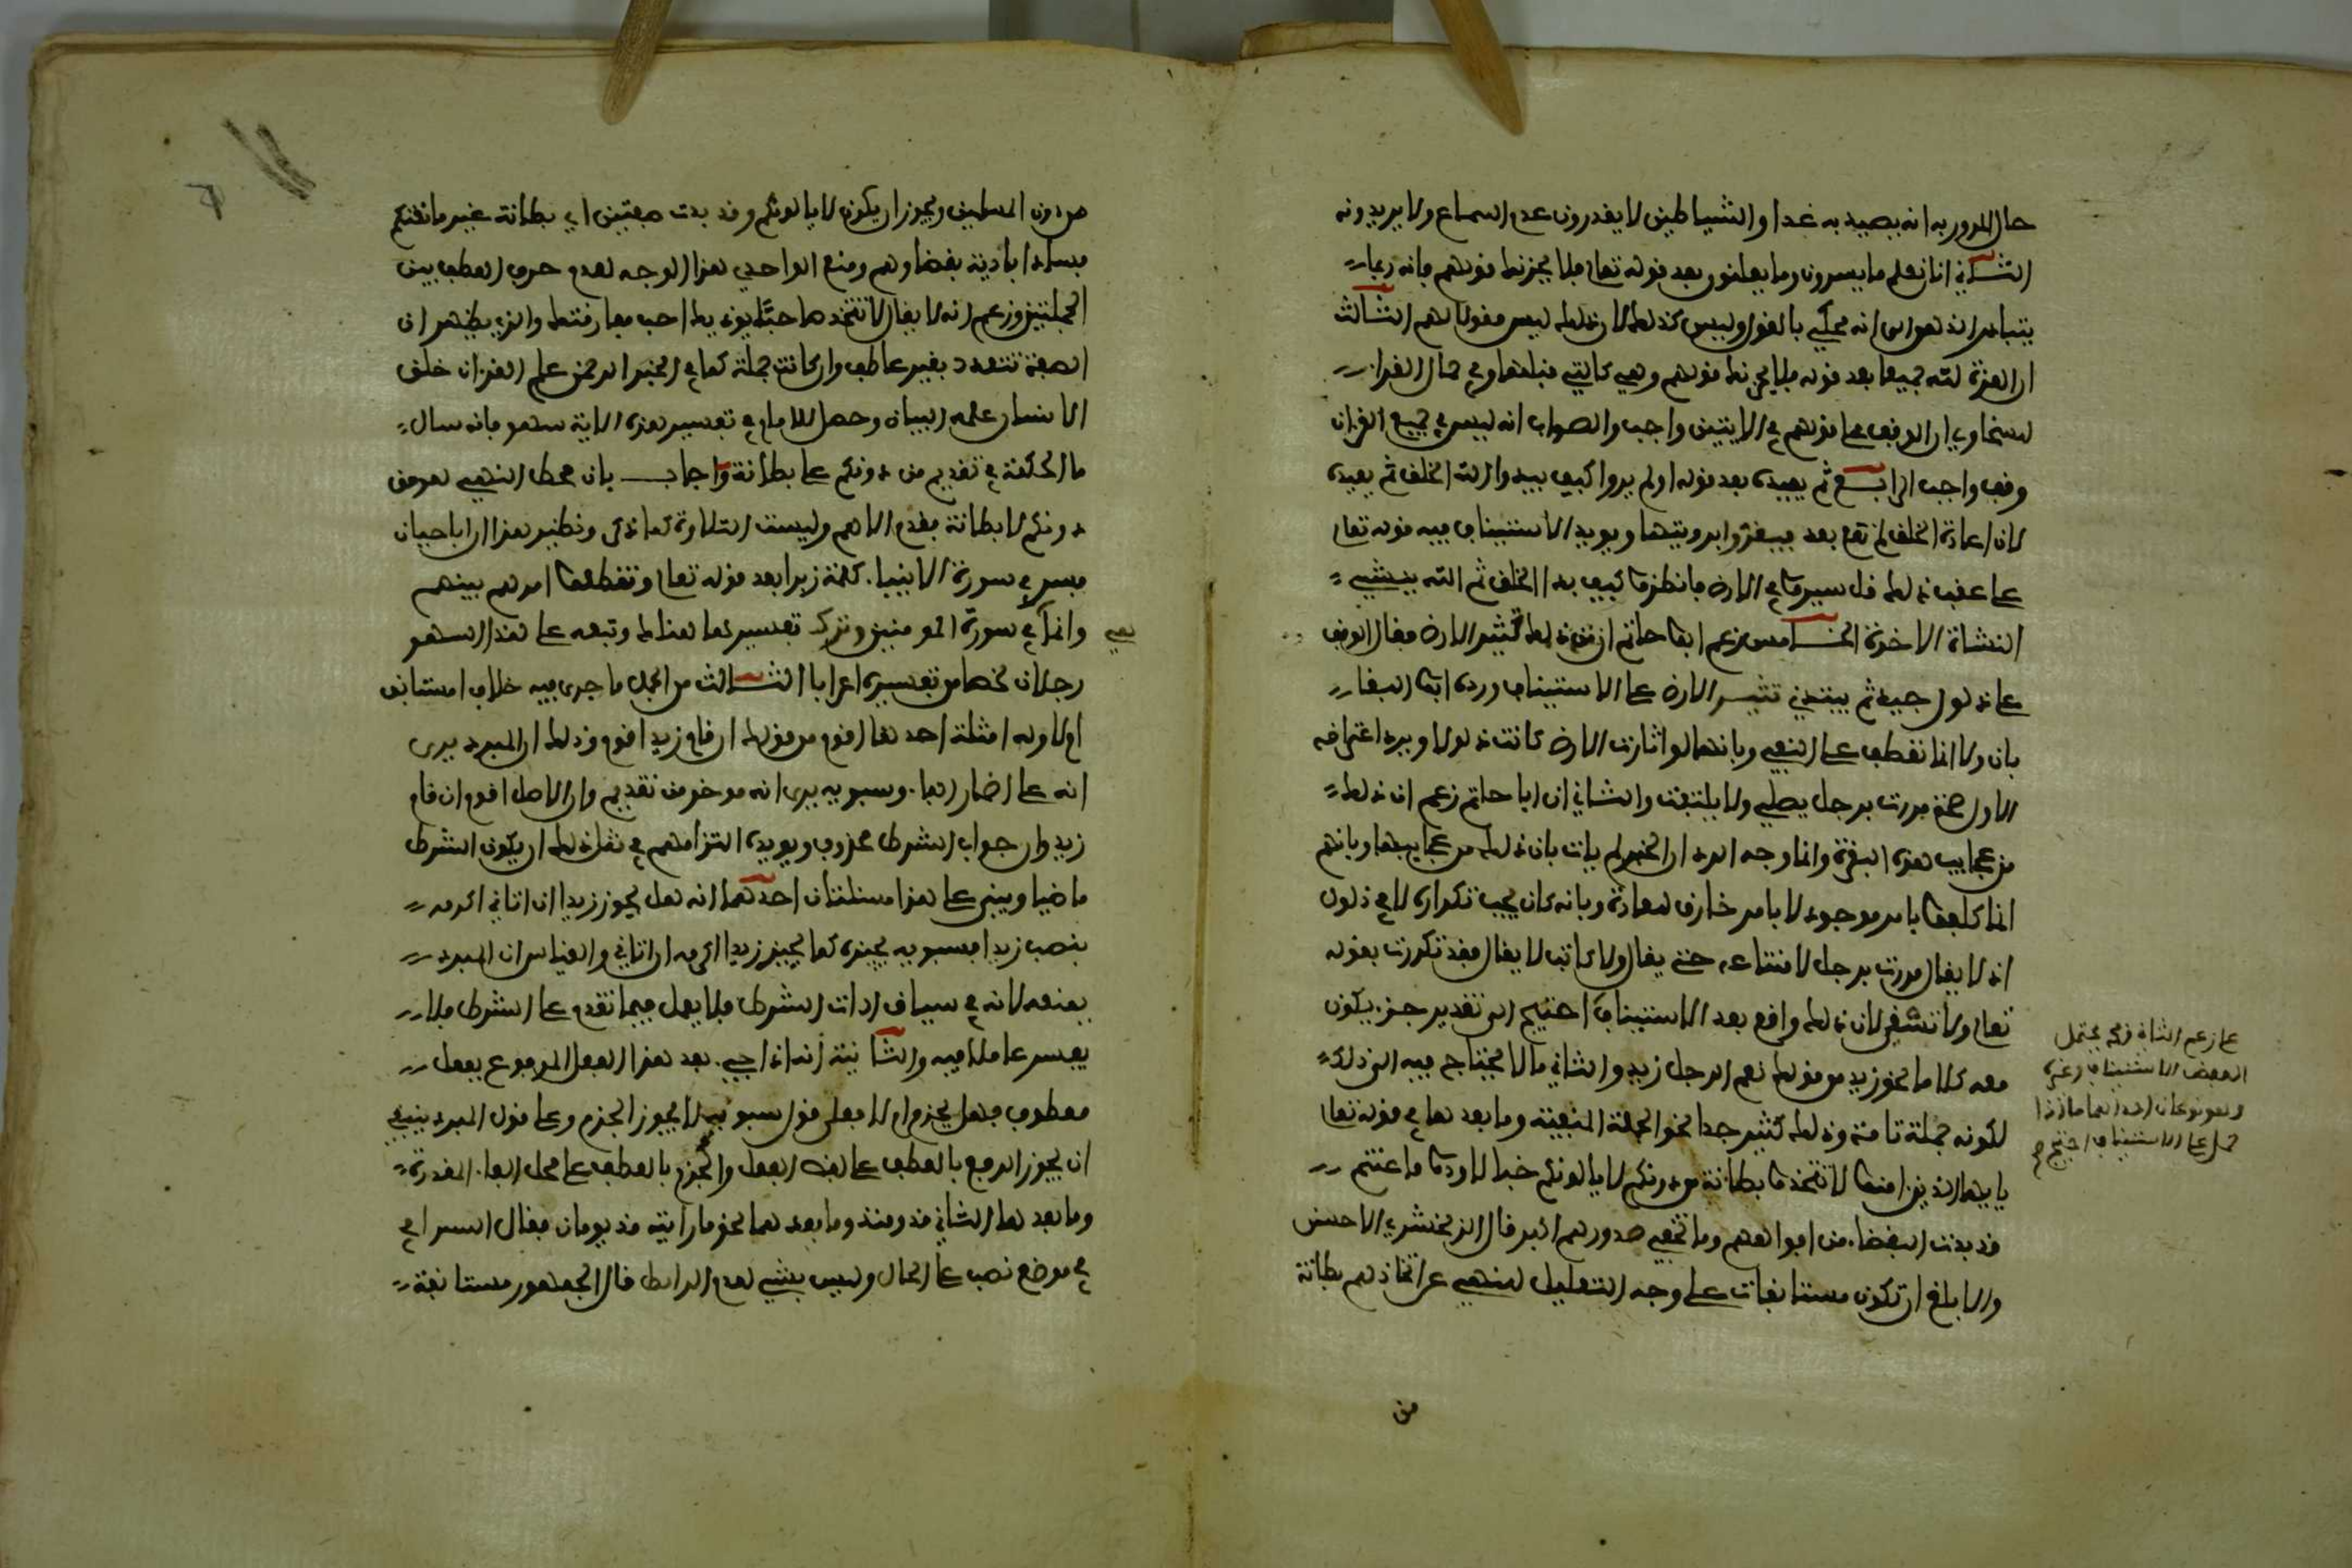 حال المرور به انه يصيد به غدا والشياطين لا يقدرون عدم السماع ولا يريدونه
الثاني انا نعلم ما يسرون وما يعلنون بعد قوله تعالى فلا يحزنك قولهم فانه ربما
يتبادر الذهن الى انه محكي بالقول وليس كذلك لان ذلك ليس مقولا لهم الثالث
ان العزة لله جميعا بعد قوله فلا يحزنك قولهم وهي كالتي قبلها وفي جمال القراء
لسخاوي ان الوقف على قولهم في الايتين واجب والصواب انه ليس في جميع القران
وقف واجب الرابع ثم يعيده بعد قوله اولم يروا كيف يبدوا الله الخلق ثم يعيده
لان اعادة الخلق لم تقع بعد فيقروا برويتها ويويد الاستيناف فيه قوله تعالى
على عقب ذلك قل سيروا في الارض فانظروا كيف بدا الخلق ثم الله ينشي
النشاة الاخرة الخامس زعم ابو حاتم ان من ذلك تثير الارض فقال الوقف
على ذلول جيد ثم يبتدي تثير الارض على الاستيناف ورده ابو البقاء
بان ولا انما تعطف على النفي وبانها لو اثارت الارض كانت ذلولا ويرد اعتراضه
الاول صحة مررت برجل يصلي ولا يلتفت والثاني ان ابا حاتم زعم ان ذلك
من عجايب هذه البقرة وانما وجه الرد ان الخبر لم يات بان ذلك من عجايبها وبانهم
انما كلفوا بامر موجود لا بامر خارق للعادة وبانه كان يجب تكرار لا في ذلول
اذ لا يقال مررت برجل لا شاعر حتى يقال ولا كاتب لا يقال فقد تكررت بقوله
تعالى ولا تسقي لان ذلك واقع بعد الاستيناف احتيج الى تقدير جزء يكون
معه كلاما نحو زيد من قولك نعم الرجل زيد والثاني ما لا يحتاج فيه الى ذلك
لكونه جملة تامة وذلك كثير جدا نحو الجملة المنفية وما بعدها في قوله تعالى
يا يها الذين امنوا لا تتخذوا بطانة من دونكم لا يالونكم خبالا ودوا ما عنتم
قد بدت البغضاء من افواههم وما تخفي صدورهم اكبر قال الزمخشري الاحسن
والابلغ ان تكون مستانفات على وجه التعليل للنهي عن اتخاذهم بطانة
من
على زعم الثاني قد يحتمل
اللفظ الاستيناف وغيره
وهو نوعان احداهما ما اذا
حمل على الاستيناف احتيج
من دون المسلمين ويجوز ان يكون لا يالونكم وقد بدت صفتين اي بطانة غير مانعتكم
فسادا بادية بغضاوهم ومنع الواحدي هذا الوجه لعدم حرف العطف بين
الجملتين وزعم انه لا يقال لا تتخذ صاحبا يوذيك احب مفارقتك والذي يظهر ان
الصفة تتعدد بغير عاطف وان كانت جملة كما في الخبر الرحمن علم القران خلق
الانسان علمه البيان وحصل للامام في تفسير هذه الاية سهو فانه سال
ما الحكمة في تقديم من دونكم على بطانة واجاب بان محط النهي هو من
دونكم لا بطانة فقدم الاهم وليست التلاوة كما ذكر ونظير هذا ان ابا حيان
فسر في سورة الانبيا كلمة زبرا بعد قوله تعالى وتقطعوا امرهم بينهم
وانما هي في سورة المومنين وترك تفسيرها هناك وتبعه على هذا السهو
رجلان لخصا من تفسيره اعرابا الثالث من الجمل ما جرى فيه خلاف امستانف
ام لا وله امثلة احدها اقوم من قولك ان قام زيد اقوم وذلك ان المبرد يرى
انه على اضمار الفا وسبويه يرى انه موخر من تقديم وان الاصل اقوم ان قام
زيد وان جواب الشرط محذوف ويويده التزامهم في مثل ذلك ان يكون الشرط
ماضيا وينبني على هذا مسئلتان احداهما انه هل يجوز زيدا ان اتاني اكرمه
بنصب زيدا فسبويه يجيزه كما يجيز زيدا اكرمه ان اتاني والقياس ان المبرد
يمنعه لانه في سياق ادات الشرط فلا يعمل فيما تقدم على الشرط فلا
يفسر عاملا فيه والثانية انه اذا جيء بعد هذا الفعل المرفوع بفعل
معطوف فهل يجزم ام لا فعلى قول سبويه لا يجوز الجزم وعلى قول المبرد ينبغي
ان يجوز الرفع بالعطف على لفظ الفعل والجزم بالعطف على محل الفاء المقدرة
وما بعدها الثاني مذ ومنذ وما بعدهما نحو ما رايته مذ يومان فقال السيرافي
في موضع نصب على الحال وليس بشي لعدم الرابط قال الجمهور مستانفة